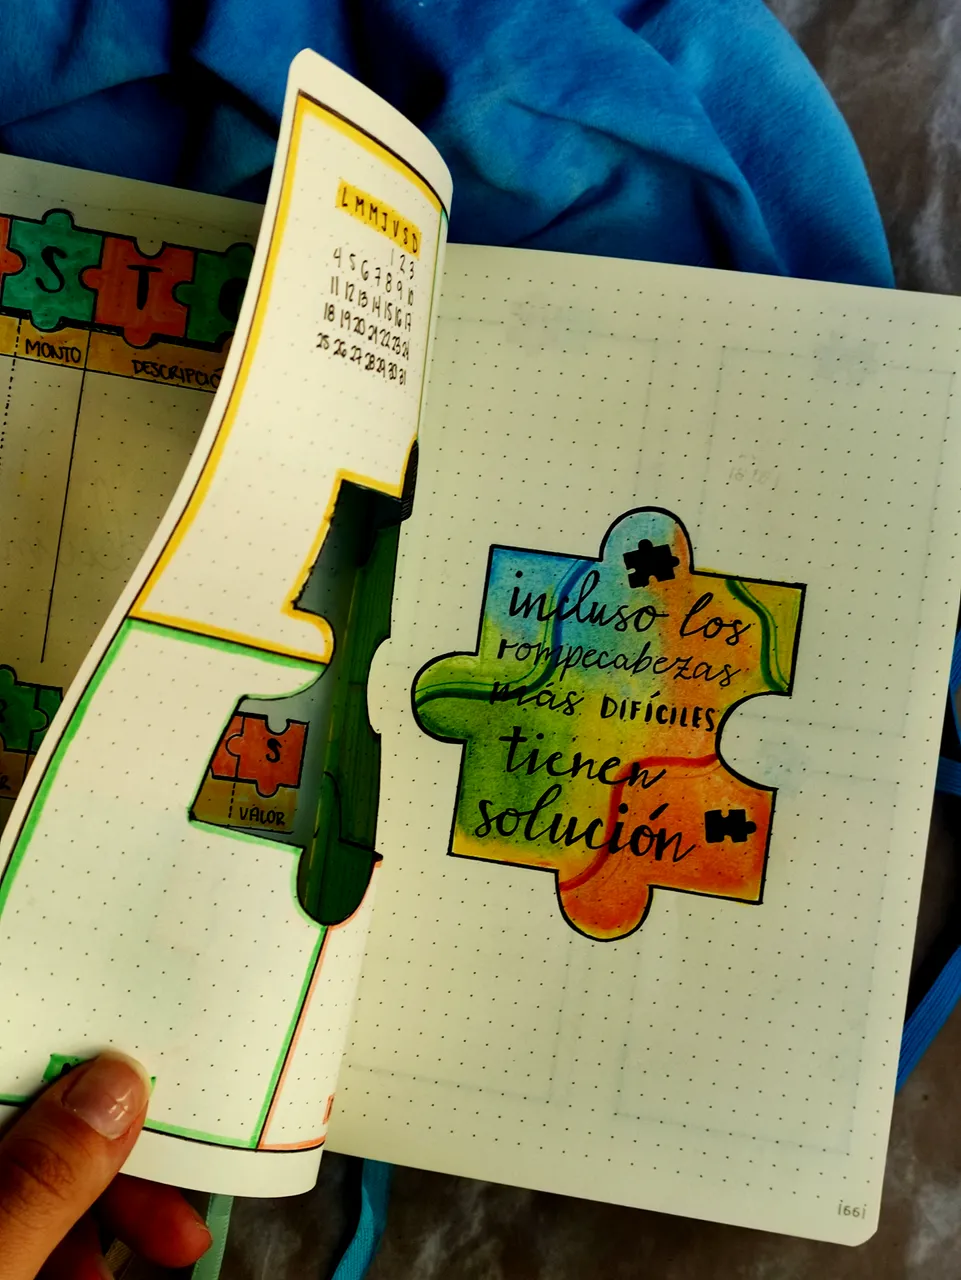 S T
MONTO DESCRIPCIÓ
L M M J V S D
1 2 3
4 5 6 7 8 9 10
11 12 13 14 15 16 17
18 19 20 21 22 23 24
25 26 27 28 29 30 31
S
VALOR
incluso los
rompecabezas
más DIFÍCILES
tienen
solución
166